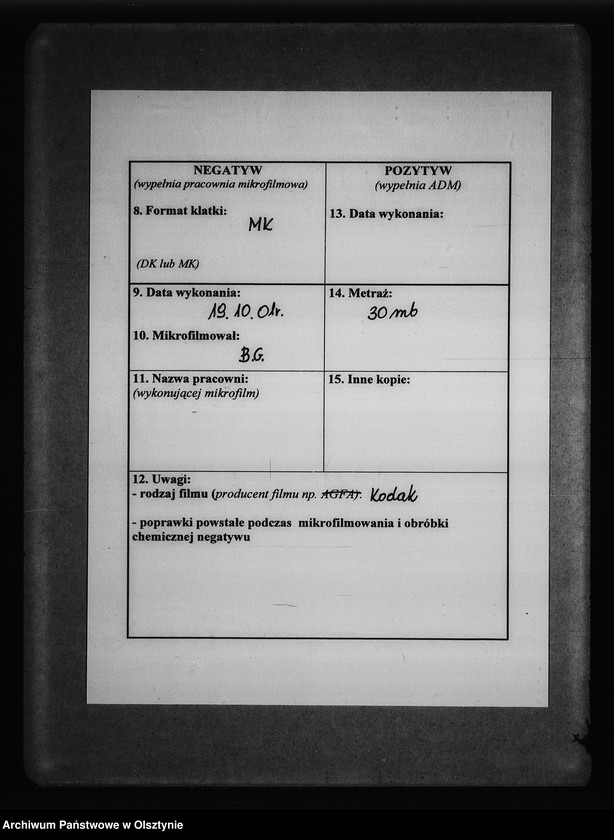 NEGATYW
(wypełnia pracownia mikrofilmowa)
8. Format klatki:
MK
(DK lub MK)
POZYTYW
(wypełnia ADM)
13. Data wykonania:
9. Data wykonania:
19.10.01r.
10. Mikrofilmował:
B.G.
14. Metraż:
30 mb
11. Nazwa pracowni:
(wykonującej mikrofilm)
15. Inne kopie:
12. Uwagi:
- rodzaj filmu (producent filmu np. AGFA): Kodak
- poprawki powstałe podczas mikrofilmowania i obróbki
chemicznej negatywu
Archiwum Państwowe w Olsztynie